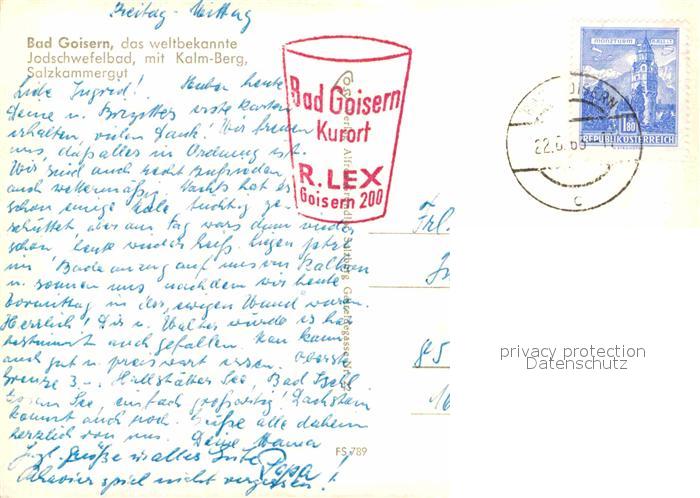 Freitag - Mittag
Bad Goisern, das weltbekannte
Jodschwefelbad, mit Kalm-Berg,
Salzkammergut
Liebe Ingrid! Haben heute
Deine u. Brigittes erste Karten
erhalten, vielen Dank! Wir freuen
uns, daß alles in Ordnung ist.
Wir sind auch recht zufrieden,
auch wettermäßig. Nachts hat es
schon einige Male tüchtig ge-
schüttet aber am Tag wars dann wieder
schön, heute wieder heiß. Liegen jetzt
im Badeanzug auf uns. Balkon
u. sonnen uns, nachdem wir heute
Vormittag in der ewigen Wand waren.
Herrlich! Dir u. Walter würde es hier
bestimmt auch gefallen. Man kann
auch gut u. preiswert essen. Oberste
Grenze 3.-. Hallstätter See, Bad Ischl
See, einfach großartig! Dachstein
kommt auch noch. Grüße alle daheim
herzlich von uns. Deine Mama
Grüße u. alles Gute Papa!
Klavierspiel nicht vergessen!
Bad Goisern
Kurort
R. LEX
Goisern 200
FS 789
Frl.
In
85
16
MÜNZTURM HALL i. T.
1.80
REPUBLIK ÖSTERREICH
22.8.69
c
privacy protection
Datenschutz